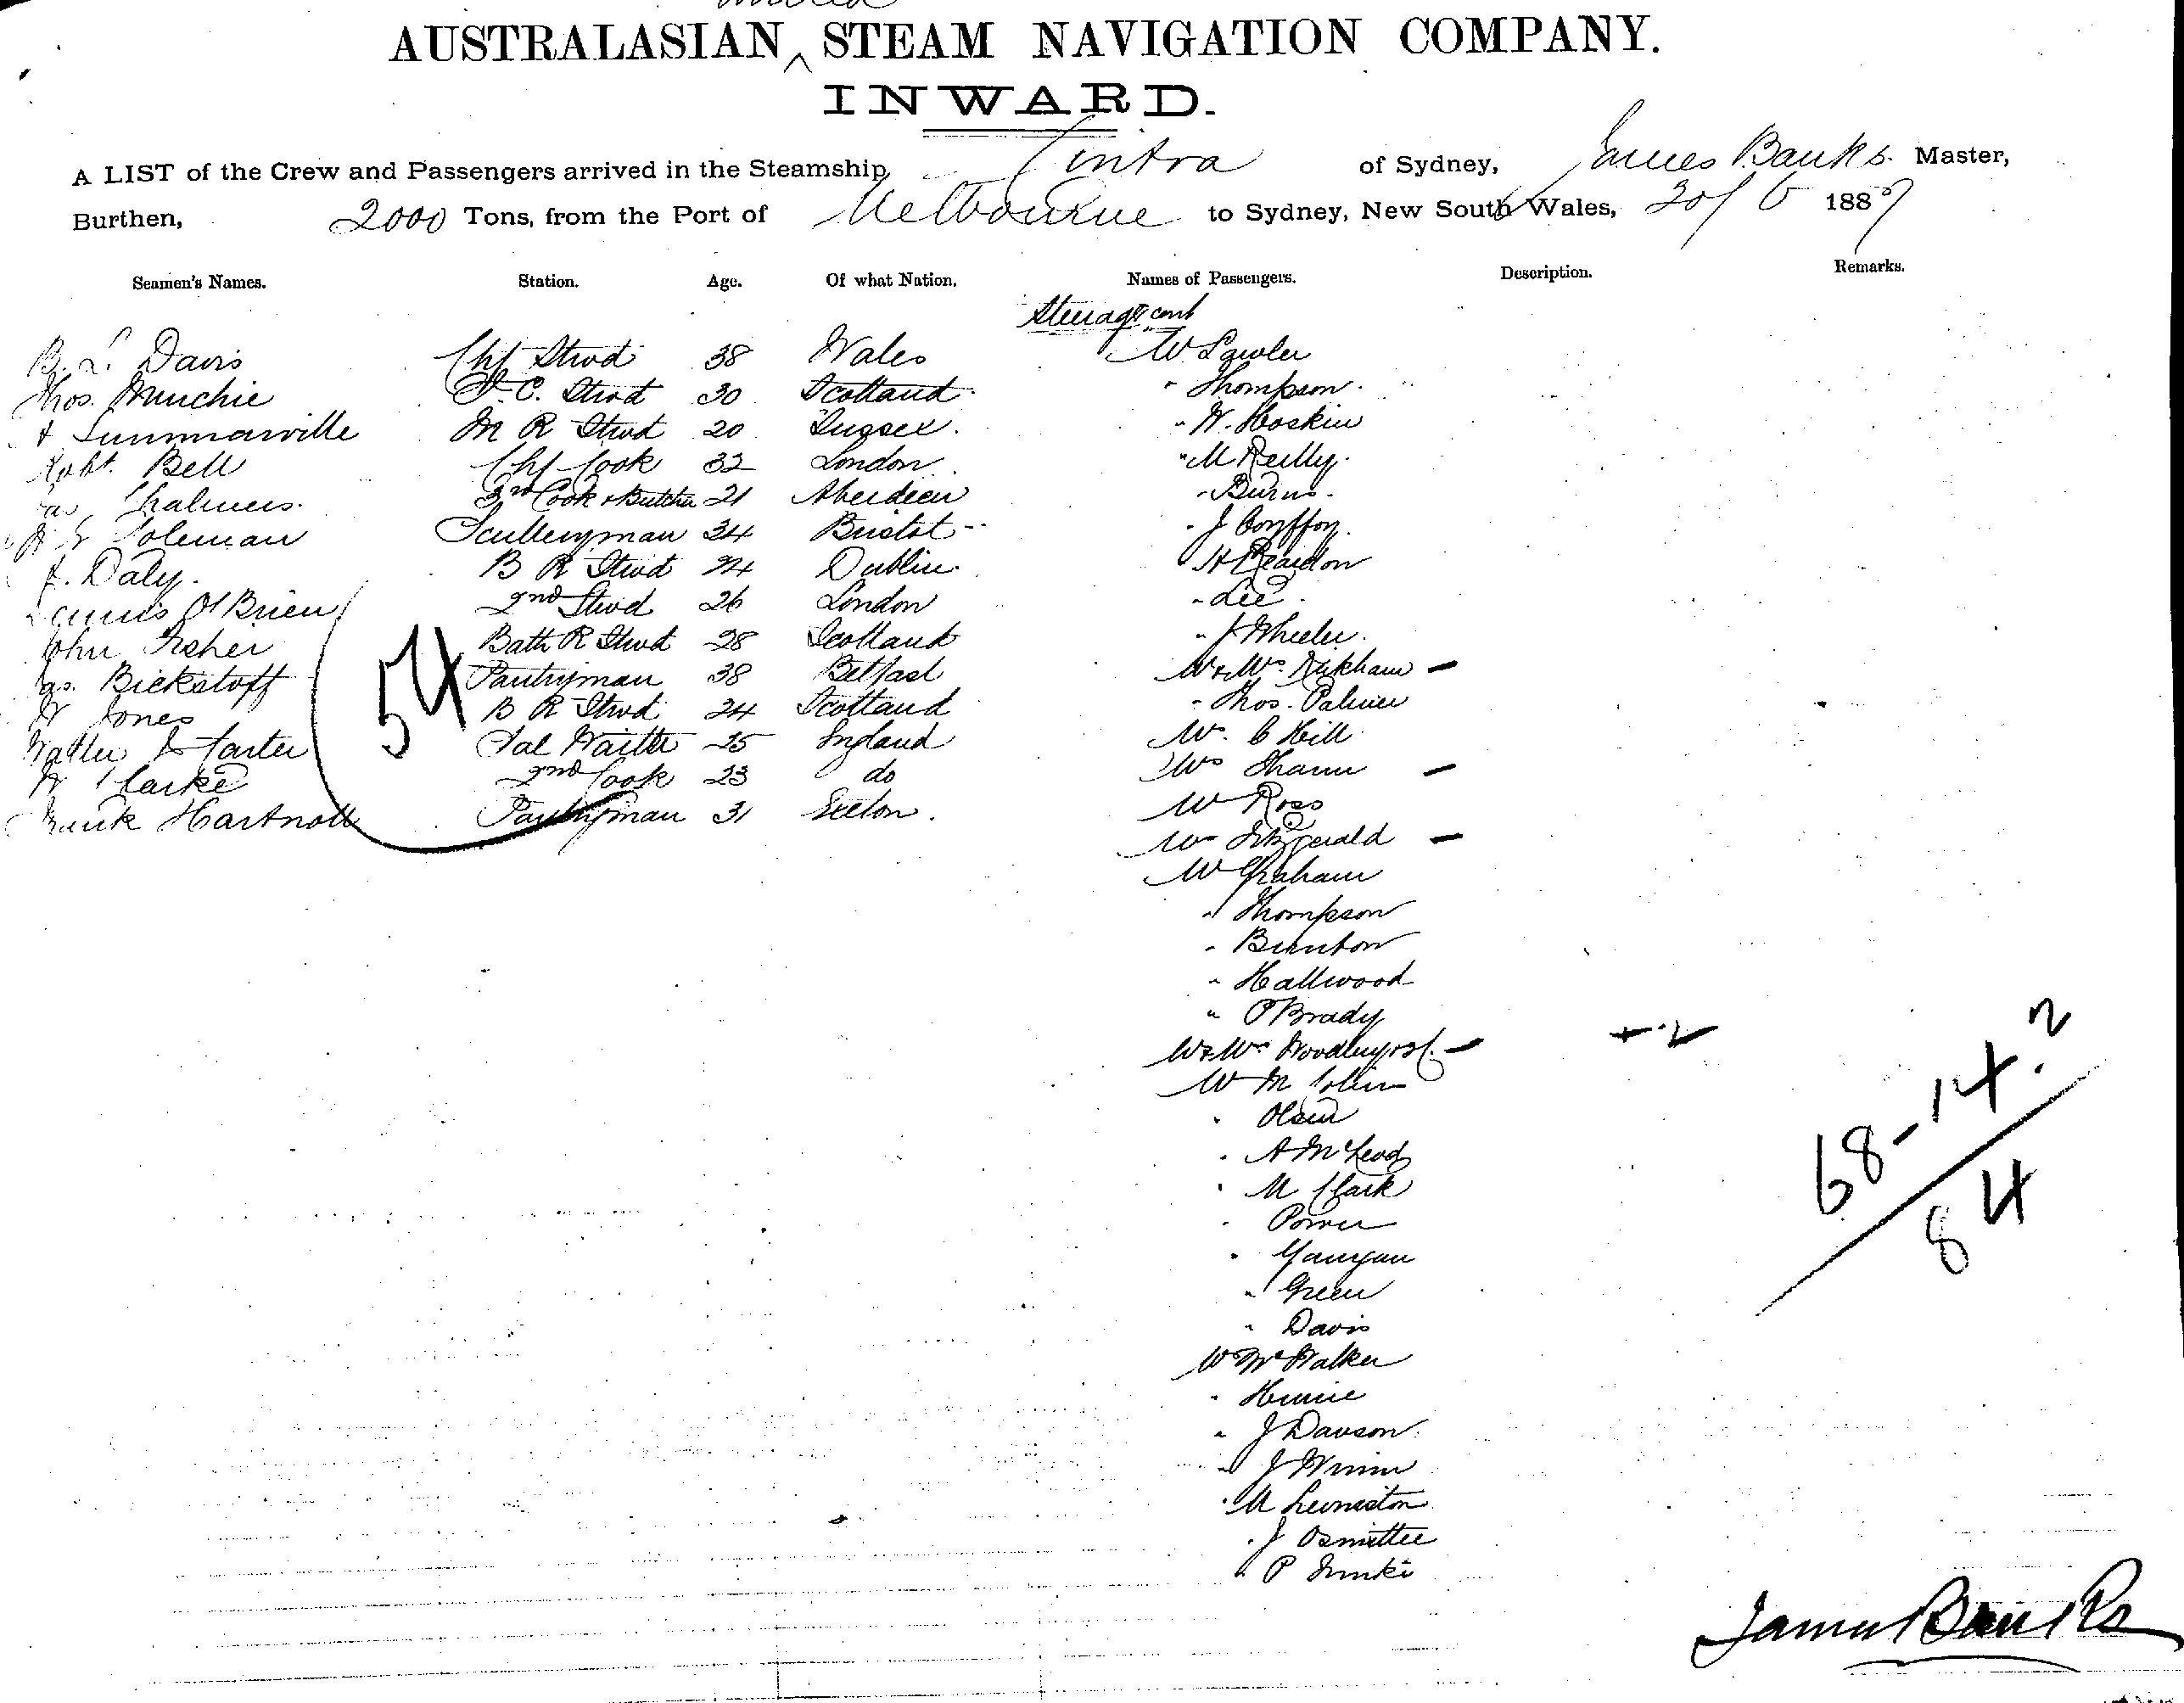 AUSTRALASIAN STEAM NAVIGATION COMPANY.
INWARD.
A LIST of the Crew and Passengers arrived in the Steamship, Cintra of Sydney, James Banks. Master,
Burthen, 2000 Tons, from the Port of Melbourne to Sydney, New South Wales, 20/6 1887
Seamen's Names. Station. Age. Of what Nation. Names of Passengers. Description. Remarks.
Steerage cont
B. L. Davis Chf Stwd 38 Wales Mr Lawler
Thos. Munchie F. C. Stwd 30 Scotland " Thompson
Summarville M R Stwd 20 Sussex. " W. Hoskin
Robt. Bell Chf Cook 32 London " M Reilly
Jas Chalmers. 3rd Cook & Butcher 21 Aberdeen " Burns
Coleman Sculleryman 34 Bristol " J
J. Daly. B R Stwd 24 Dublin. " H Reardon
James O'Brien 2nd Stwd 26 London " Lee
John Fisher Bath R Stwd 28 Scotland " J Wheeler.
Jas. Bickstoff Pantryman 38 Belfast Mr & Mrs. Kirkham –
W Jones B R Stwd 24 Scotland " Thos. Palmer
Walter Carter Sal Waiter 25 England Mr. C Hill
W Clarke 2nd Cook 23 do Mrs Shann –
Frank Hartnoll Pantryman 31 Exeter. Mr Ross
54
Mrs Fitzgerald –
Mr Graham
" Thompson
" Brunton
" Hallwood
" P Brady
Mr & Mrs –
+ 2
Mr M Colin
" Olsen
" A McLeod
" M Clark
" Power
" Green
" Davis
Mr Mc Walker
" J Dawson
" J Winn
" M
" J
" P
68-14.2
84
James Banks